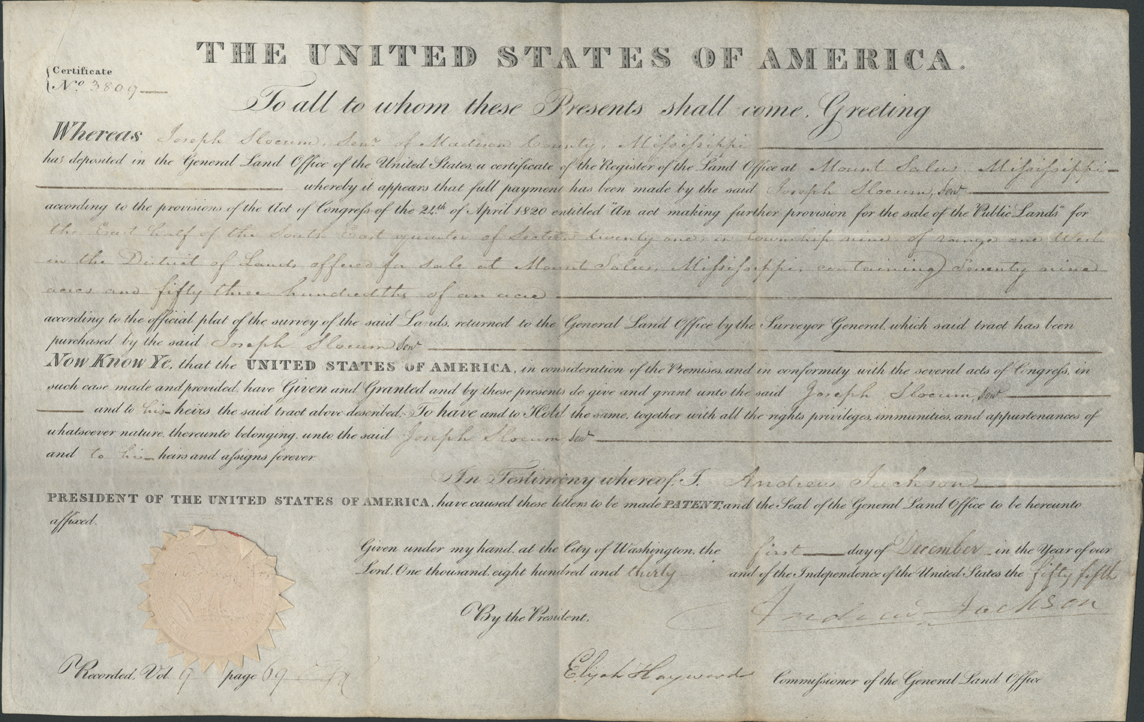 THE UNITED STATES OF AMERICA.
Certificate
No. 3809
To all to whom these Presents shall come, Greeting
Whereas Joseph Slocum, Senr. of Madison County, Mississippi
has deposited in the General Land Office of the United States, a certificate of the Register of the Land Office at Mount Salus, Mississippi
whereby it appears that full payment has been made by the said Joseph Slocum, Senr.
according to the provisions of the Act of Congress of the 24th of April 1820 entitled "An act making further provision for the sale of the Public Lands" for
the East half of the South East quarter of Section twenty one in township nine of range one West
in the District of Lands offered for sale at Mount Salus, Mississippi, containing Seventy nine
acres and fifty three hundredths of an acre
according to the official plat of the survey of the said Lands, returned to the General Land Office by the Surveyor General, which said tract has been
purchased by the said Joseph Slocum Senr.
Now Know Ye, that the UNITED STATES OF AMERICA, in consideration of the Premises, and in conformity with the several acts of Congress, in
such case made and provided, have Given and Granted and by these presents do give and grant unto the said Joseph Slocum, Senr.
and to his heirs the said tract above described: To have and to Hold the same, together with all the rights privileges, immunities, and appurtenances of
whatsoever nature, thereunto belonging, unto the said Joseph Slocum, Senr.
and to his heirs and assigns forever
In Testimony whereof, I, Andrew Jackson
PRESIDENT OF THE UNITED STATES OF AMERICA, have caused these letters to be made PATENT, and the Seal of the General Land Office to be hereunto
affixed.
Given under my hand, at the City of Washington, the first day of December in the Year of our
Lord, One thousand, eight hundred and thirty and of the Independence of the United States the fifty fifth
By the President, Andrew Jackson
Elijah Hayward Commissioner of the General Land Office
Recorded, Vol. 9 page 69